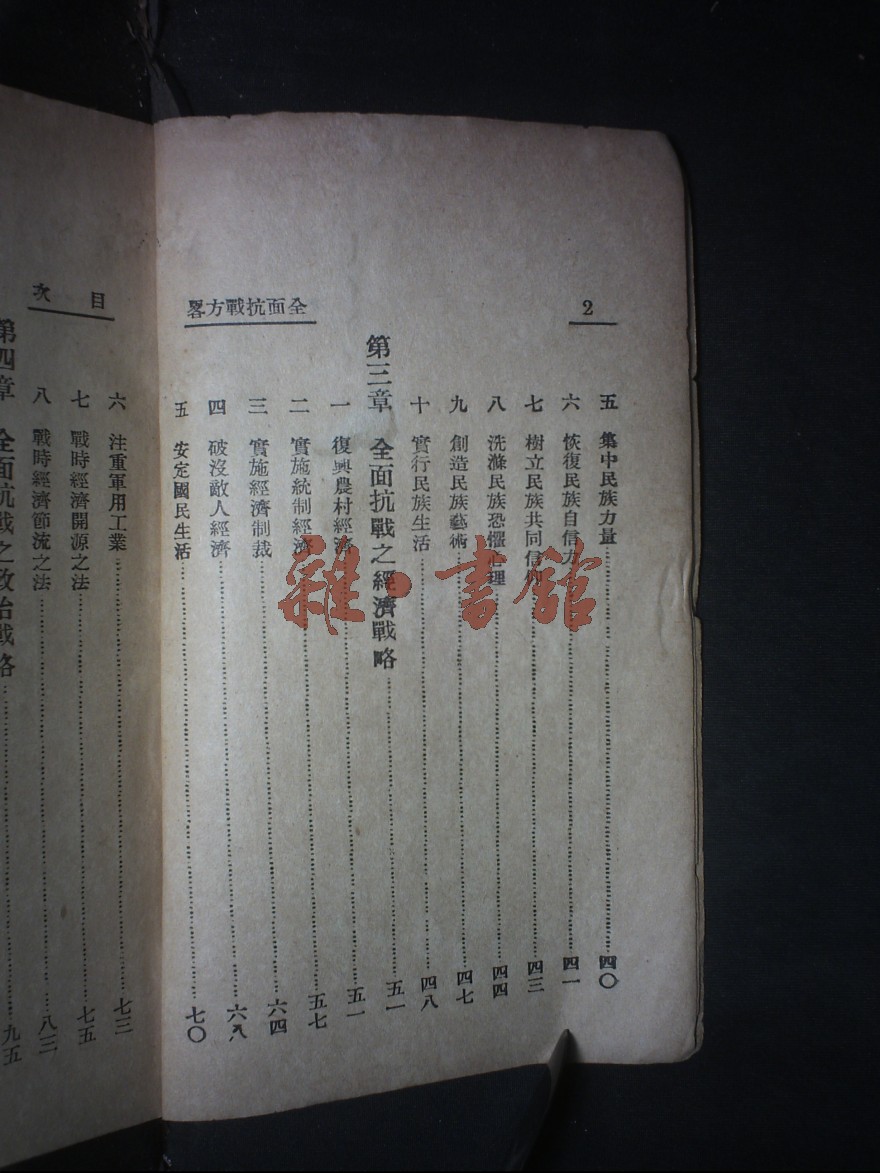 2
全面抗戰方畧
五 集中民族力量……四〇
六 恢復民族自信力……四一
七 樹立民族共同信仰……四三
八 洗滌民族恐懼心理……四四
九 創造民族藝術……四七
十 實行民族生活……四八
第三章 全面抗戰之經濟戰略……五一
一 復興農村經濟……五一
二 實施統制經濟……五七
三 實施經濟制裁……六四
四 破沒敵人經濟……六八
五 安定國民生活……七〇
目次
六 注重軍用工業……七三
七 戰時經濟開源之法……七五
八 戰時經濟節流之法……八三
第四章 全面抗戰之政治戰略……九五
雜·書館